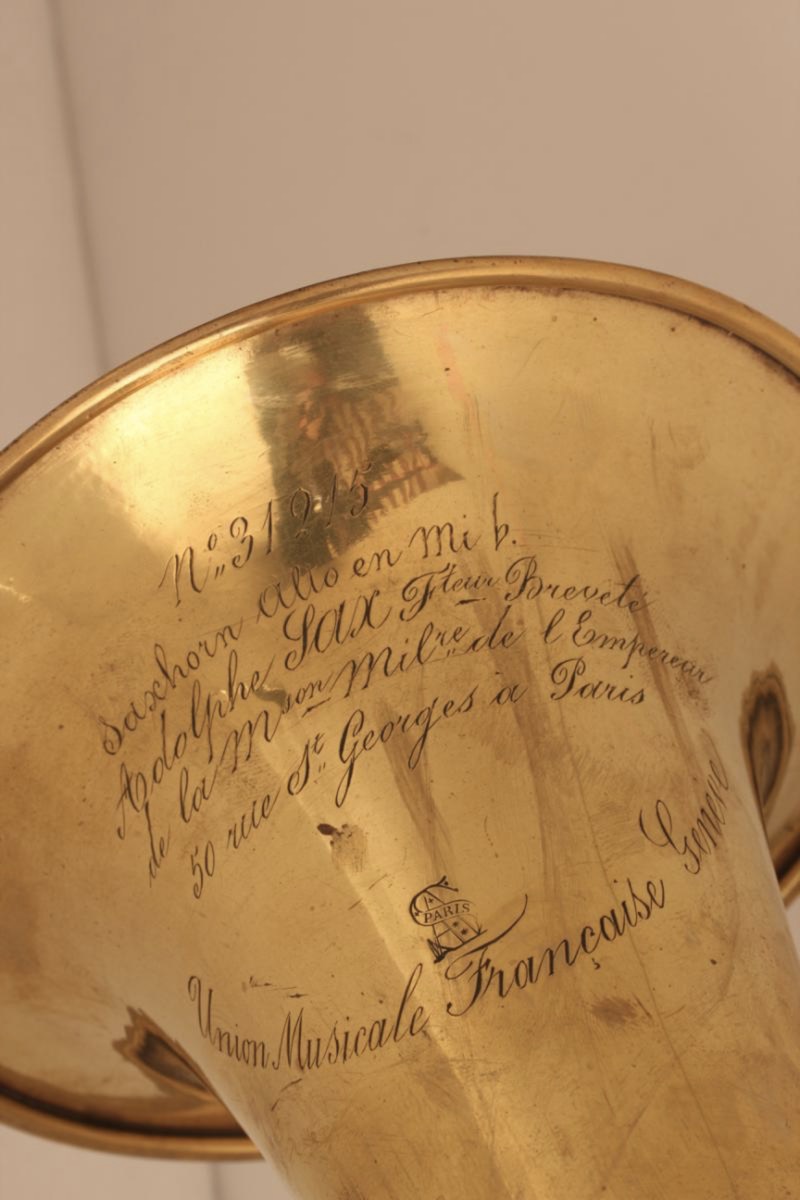 No. 31215
Saxhorn Alto en Mi b.
Adolphe SAX Fteur Breveté
de la Mson Milre de l'Empereur
50 rue St. Georges à Paris
AS
PARIS
Union Musicale Française Genève